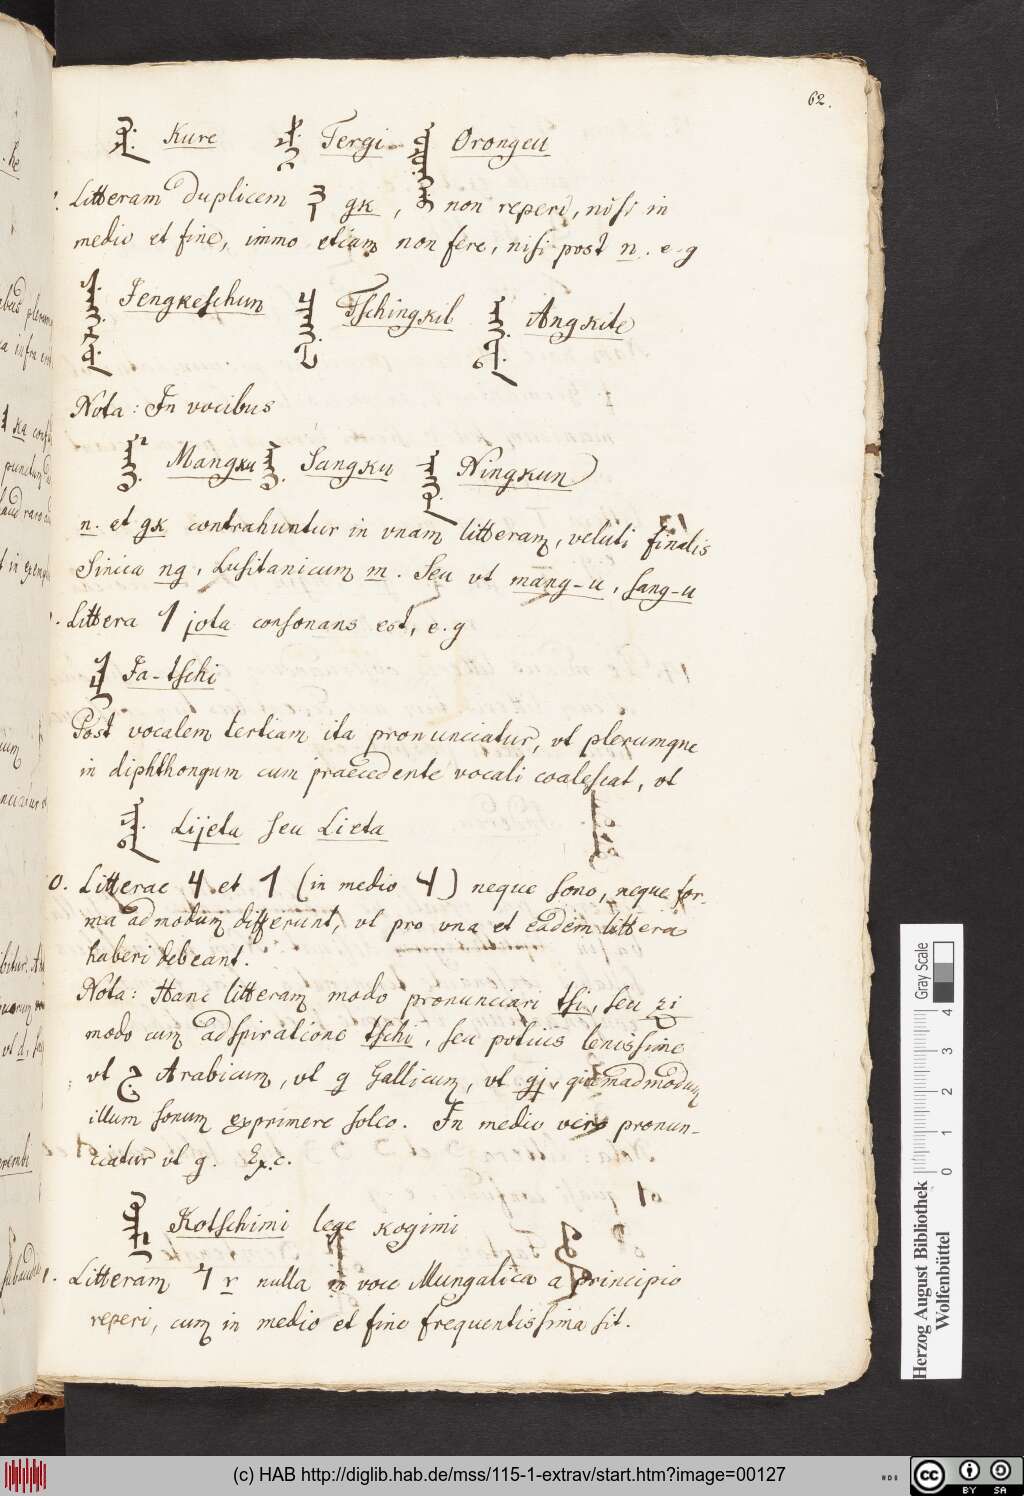 62.
Kure Tergi Orongeu
Litteram duplicem gk, non reperi, nisi in
medio et fine, immo etiam non fere, nisi post n. e.g
Jengkeschun Tschingkil Angkite
Nota: In vocibus
Mangku Sangku Ningkun
n. et gk contrahuntur in vnam litteram, veluti finalis
Sinica ng, Lusitanicum m. Seu vt mang-u, sang-u
Littera jota consonans est, e.g
Ja-tschi
Post vocalem tertiam ita pronunciatur, vt plerumque
in diphthongum cum praecedente vocali coalescat, vt
Lijeta seu Lieta
0. Litterae et (in medio) neque sono, neque for-
ma admodum differunt, vt pro vna et eadem littera
haberi debeant.
Nota: Hanc litteram modo pronunciari tsi, seu zi
modo cum adspiratione tschi, seu potius lenissime
vt ج Arabicum, vt g Gallicum, vt gj, quemadmodum
illum sonum exprimere soleo. In medio vero pronun-
ciatur vt g. Ex.c.
Kotschimi lege kogimi
Litteram r nulla in voce Mungalica a principio
reperi, cum in medio et fine frequentissima sit.
Herzog August Bibliothek
Wolfenbüttel
Gray Scale
0 1 2 3 4
(c) HAB http://diglib.hab.de/mss/115-1-extrav/start.htm?image=00127
CC BY SA